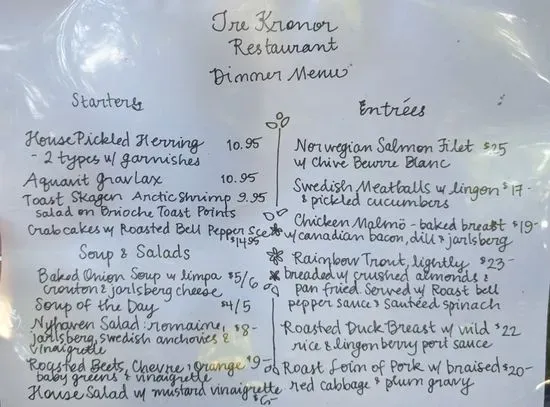 Tre Kronor
Restaurant
Dinner Menu
Starters
House Pickled Herring 10.95
- 2 types w/ garnishes
Aquavit Gravlax 10.95
Toast Skagen Arctic Shrimp 9.95
salad on Brioche Toast Points
Crab cakes w/ Roasted Bell Pepper Sce
$14.95
Soup & Salads
Baked Onion Soup w limpa $5/6
crouton & jarlsberg cheese
Soup of the Day $4/5
Nyhaven Salad: romaine, $8-
jarlsberg, swedish anchovies &
vinaigrette
Roasted Beets, Chevre, Orange $9-
baby greens & vinaigrette
House Salad w/ mustard vinaigrette
$6-
Entrées
Norwegian Salmon Filet $25
w/ Chive Beurre Blanc
Swedish Meatballs w lingon $17-
& pickled cucumbers
Chicken Malmö - baked breast $19-
w/ canadian bacon, dill & jarlsberg
Rainbow Trout, lightly $23-
breaded w/ crushed almonds &
pan fried. Served w/ Roast bell
pepper sauce & Sautéed spinach
Roasted Duck Breast w/ wild $22
rice & lingonberry port sauce
Roast Loin of Pork w/ braised $20-
red cabbage & plum gravy